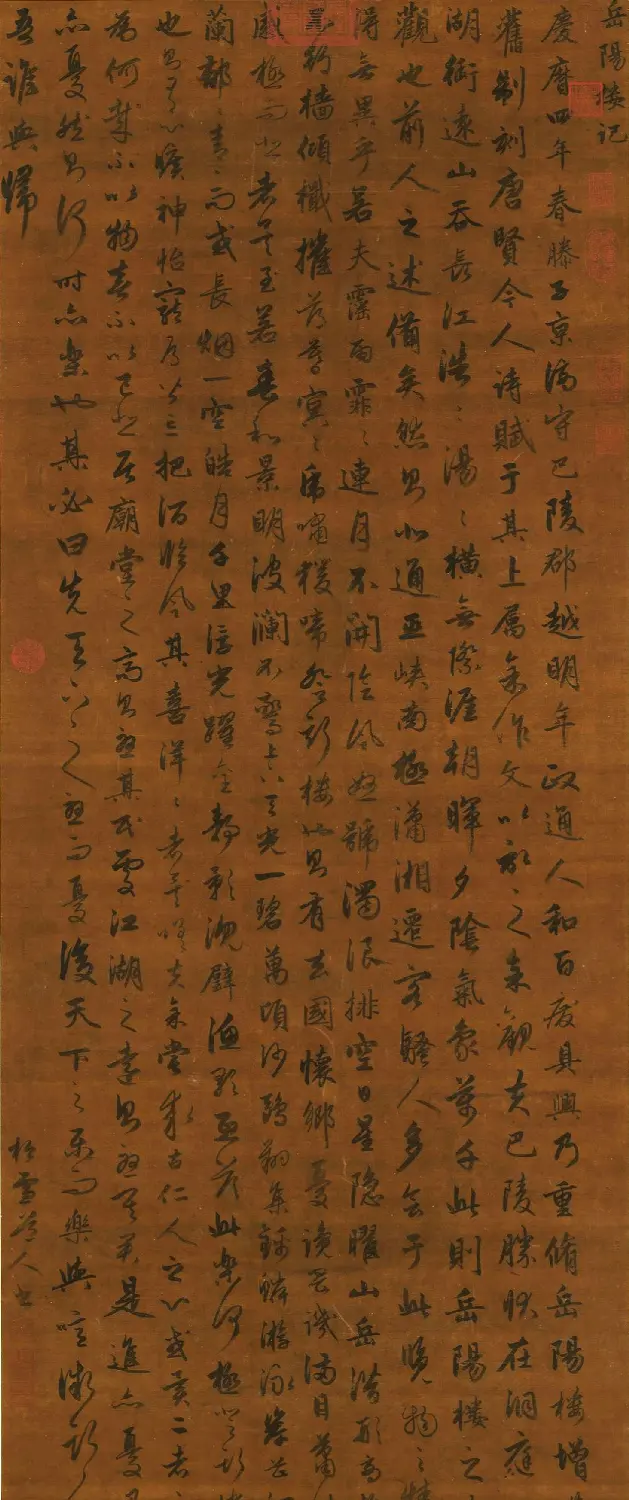 岳陽樓記
慶曆四年春滕子京謫守巴陵郡越明年政通人和百廢具興乃重脩岳陽樓增
舊制刻唐賢今人詩賦于其上屬余作文以記之余觀夫巴陵勝狀在洞庭
湖銜遠山吞長江浩〻湯〻橫無際涯朝暉夕陰氣象萬千此則岳陽樓之
觀也前人之述備矣然則北通巫峽南極瀟湘遷客騷人多會于此覽物之情
得無異乎若夫霪雨霏〻連月不開陰風怒號濁浪排空日星隱曜山岳潛形商
不行檣傾檝摧薄暮冥〻虎嘯猨啼登斯樓也則有去國懷鄉憂讒畏譏滿目蕭
感極而悲者矣至若春和景明波瀾不驚上下天光一碧萬頃沙鷗翔集錦鱗游泳岸芷
蘭郁〻青〻而或長烟一空皓月千里浮光躍金靜影沉璧漁歌互答此樂何極登斯
也則有心曠神怡寵辱皆忘把酒臨風其喜洋〻者矣嗟夫余嘗求古仁人之心或異二者
為何哉不以物喜不以己悲居廟堂之高則憂其民處江湖之遠則憂其君是進亦憂
亦憂然則何時而樂也其必曰先天下之憂而憂後天下之樂而樂與噫微斯
吾誰與歸
松雪道人書